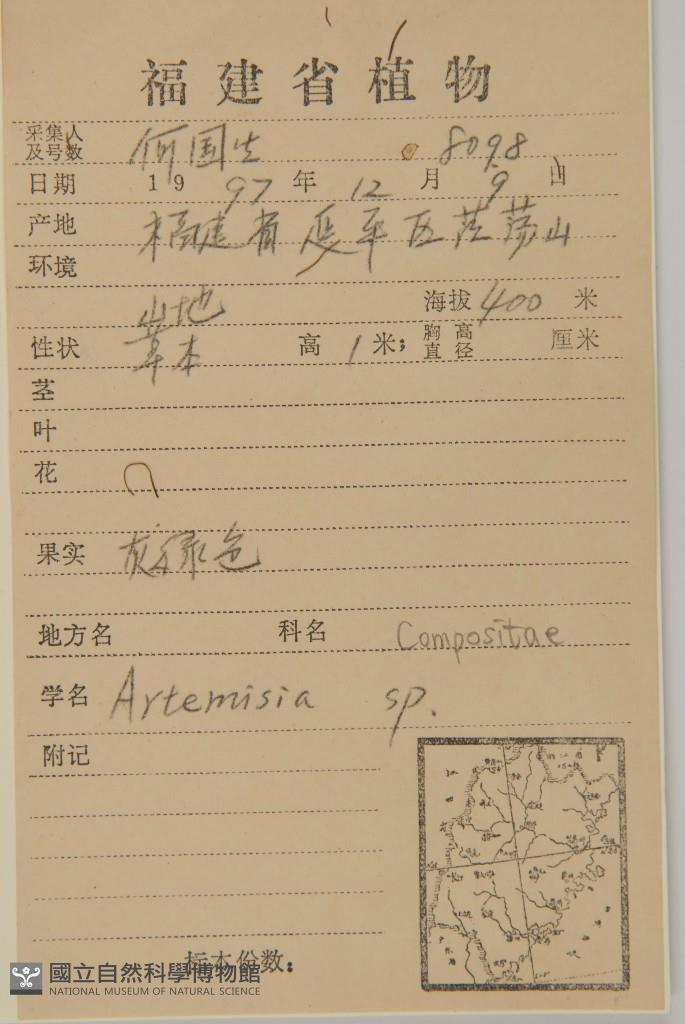 福建省植物
采集人及号数 何国生 8098
日期 1997年12月9日
产地 福建省延平区茫荡山
环境
山地 海拔 400 米
性状 草本 高 1 米; 胸高直径 厘米
茎
叶
花
果实 灰绿色
地方名 科名 Compositae
学名 Artemisia sp.
附记
标本份数:
國立自然科學博物館
NATIONAL MUSEUM OF NATURAL SCIENCE